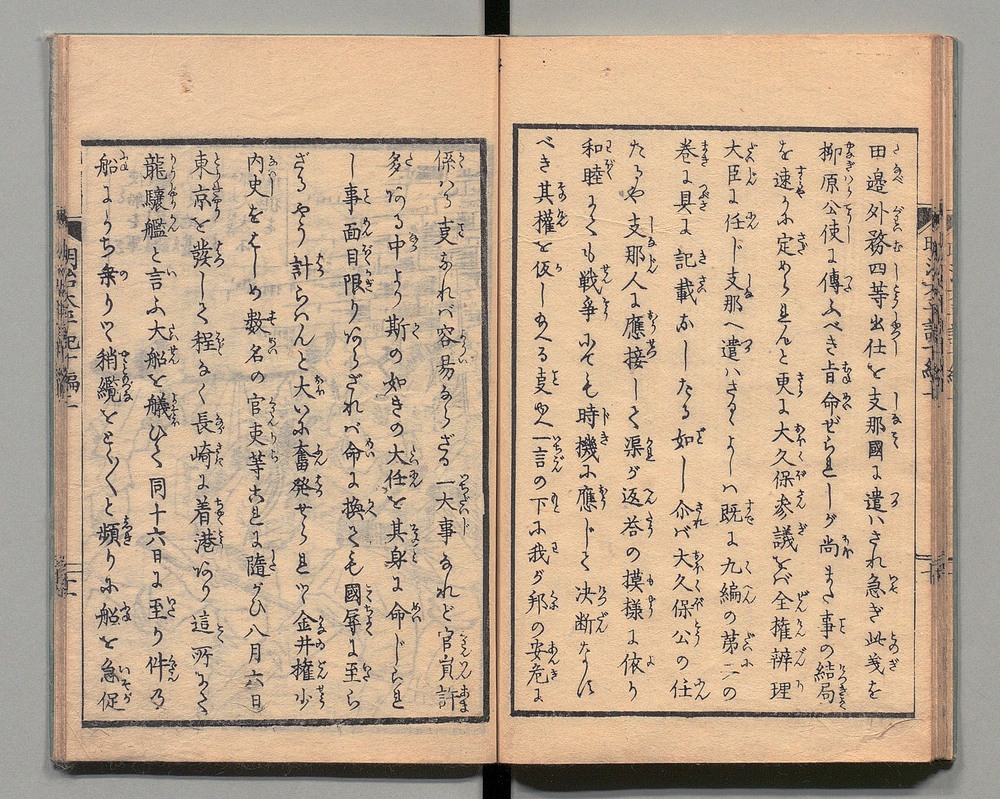 田邉外務四等出仕を支那國に遣ハされ急ぎ此義を
柳原公使に傳ふべき旨命ぜられしが尚また事の結局
を速かに定められんと更に大久保参議をバ全権辨理
大臣に任じ支那へ遣ハさるゝよしハ既に九編の第二の
巻に具に記載なしたる如し介バ大久保公の任
たるや支那人に應接しく渠が返答の摸様に依り
和睦にても戦争にても時機に應じて决断なし
べき其權を仮し
一言の下に我が邦の安危に
係ハる叓なれバ容易ならざる一大事なれど官員許
多ある中より斯の如きの大任を其身に命じられ
し事面目限りあらざれバ命に換ても國辱に至ら
ざるやう計らハんと大いに奮発せられツヽ金井權少
内史をはじめ数名の官吏等これに隨がひ八月六日
東京を發して程なく長崎に着港あり這所にて
龍驤艦と言ふ大船を艤ひて同十六日に至り件の
船にうち乗りツヽ稍纜をとく〱と頻りに船を急促
明治太平記十編上